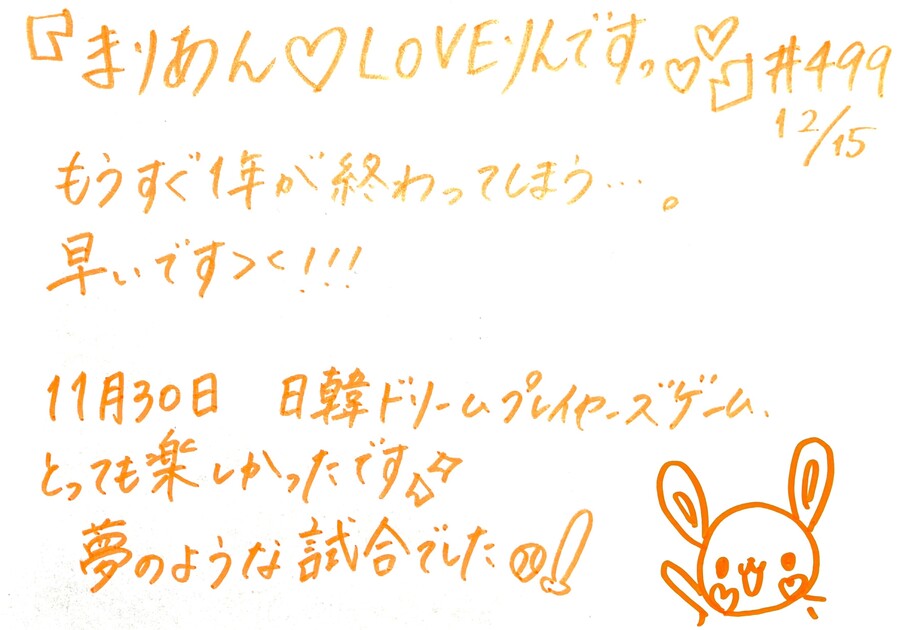 『まりあん♡LOVEりんですっ♡♡』#499
12/15
もうすぐ1年が終わってしまう…。
早いです＞＜!!!
11月30日　日韓ドリームプレイヤーズゲーム、
とっても楽しかったです♪
夢のような試合でした!!